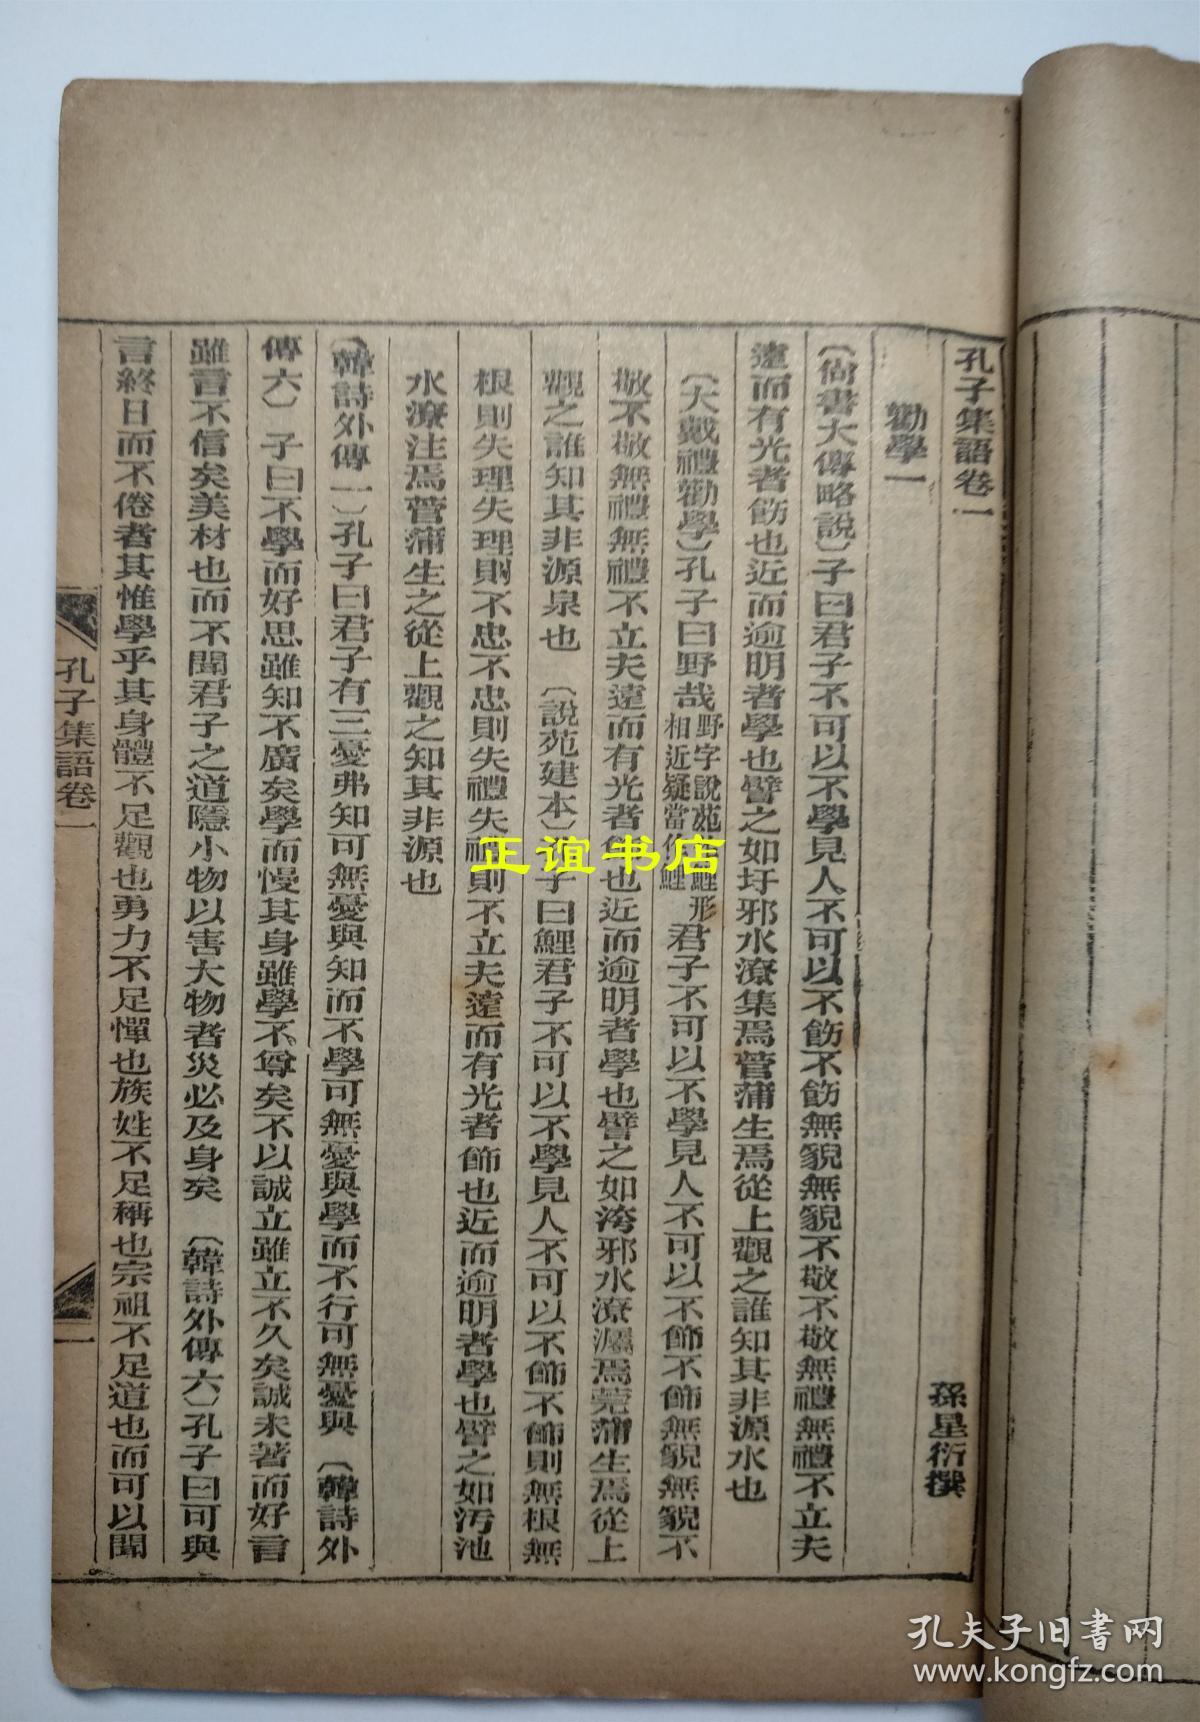 孔子集語卷一
孫星衍撰
勸學一
〔尙書大傳略說〕子曰君子不可以不學見人不可以不飭不飭無貌無貌不敬不敬無禮無禮不立夫
遠而有光者飭也近而逾明者學也譬之如圩邪水潦集焉菅蒲生焉從上觀之誰知其非源水也
〔大戴禮勸學〕孔子曰野哉野字說苑作鯉形相近疑當作鯉君子不可以不學見人不可以不飾不飾無貌無貌不
敬不敬無禮無禮不立夫遠而有光者飾也近而逾明者學也譬之如洿邪水潦灟焉莞蒲生焉從上
觀之誰知其非源泉也 〔說苑建本〕孔子曰鯉君子不可以不學見人不可以不飾不飾則無根無
根則失理失理則不忠不忠則失禮失禮則不立夫遠而有光者飾也近而逾明者學也譬之如汚池
水潦注焉菅蒲生之從上觀之知其非源也
〔韓詩外傳一〕孔子曰君子有三憂弗知可無憂與知而不學可無憂與學而不行可無憂與 〔韓詩外
傳六〕子曰不學而好思雖知不廣矣學而慢其身雖學不尊矣不以誠立雖立不久矣誠未著而好言
雖言不信矣美材也而不聞君子之道隱小物以害大物者災必及身矣 〔韓詩外傳六〕孔子曰可與
言終日而不倦者其惟學乎其身體不足觀也勇力不足憚也族姓不足稱也宗祖不足道也而可以聞
孔子集語卷一
一
正谊书店
孔夫子旧书网
www.kongfz.com